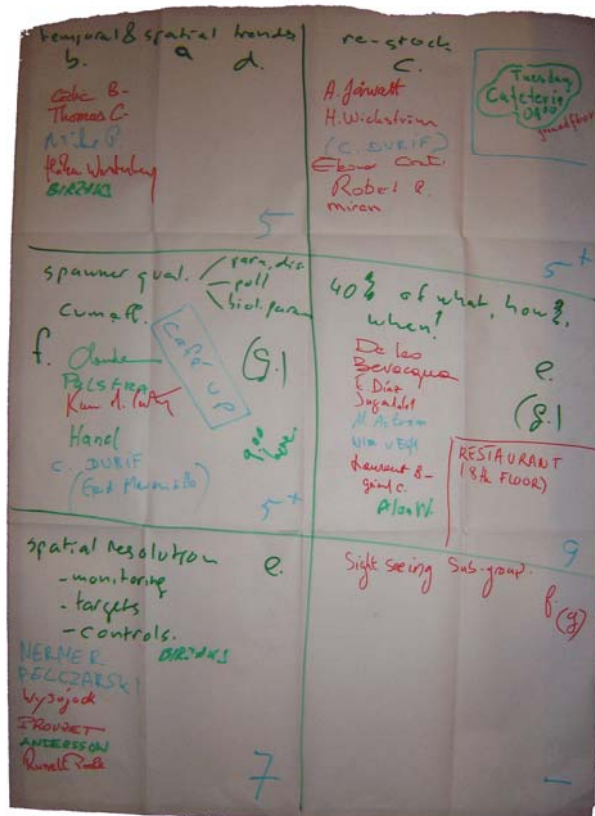 temporal & spatial trends
b. a d.
Cédric B-
Thomas C-
Håkan Westerberg
BIRZAKS
5
re-stock
C.
A. Järvalt
H. Wickström
(C. DURIF)
Robert R.
miran
5+
Tuesday
Cafeteria
09⁰⁰
ground floor
spawner qual.
para, dis.
poll
biol. param
cum eff.
f.
(g.)
PALSTRA
Hanel
C. DURIF
Café UP
9⁰⁰ here.
5+
40% of what, how?,
when?
De Leo
Bevacqua
E. Diaz
M. Åström
Laurent B-
Alan W.
e.
(g.)
RESTAURANT
(8th FLOOR)
9
spatial resolution e.
- monitoring
- targets
- controls.
NERMER
BIRZAKS
PELCZARSKI
Wysujack
PROUZET
ANDERSSON
Russell Poole
7
Sight seeing Sub-group.
f.
(g)
-